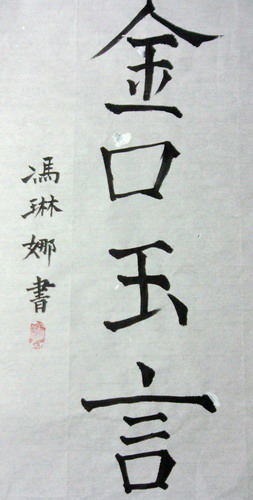 金口玉言
馮琳娜書